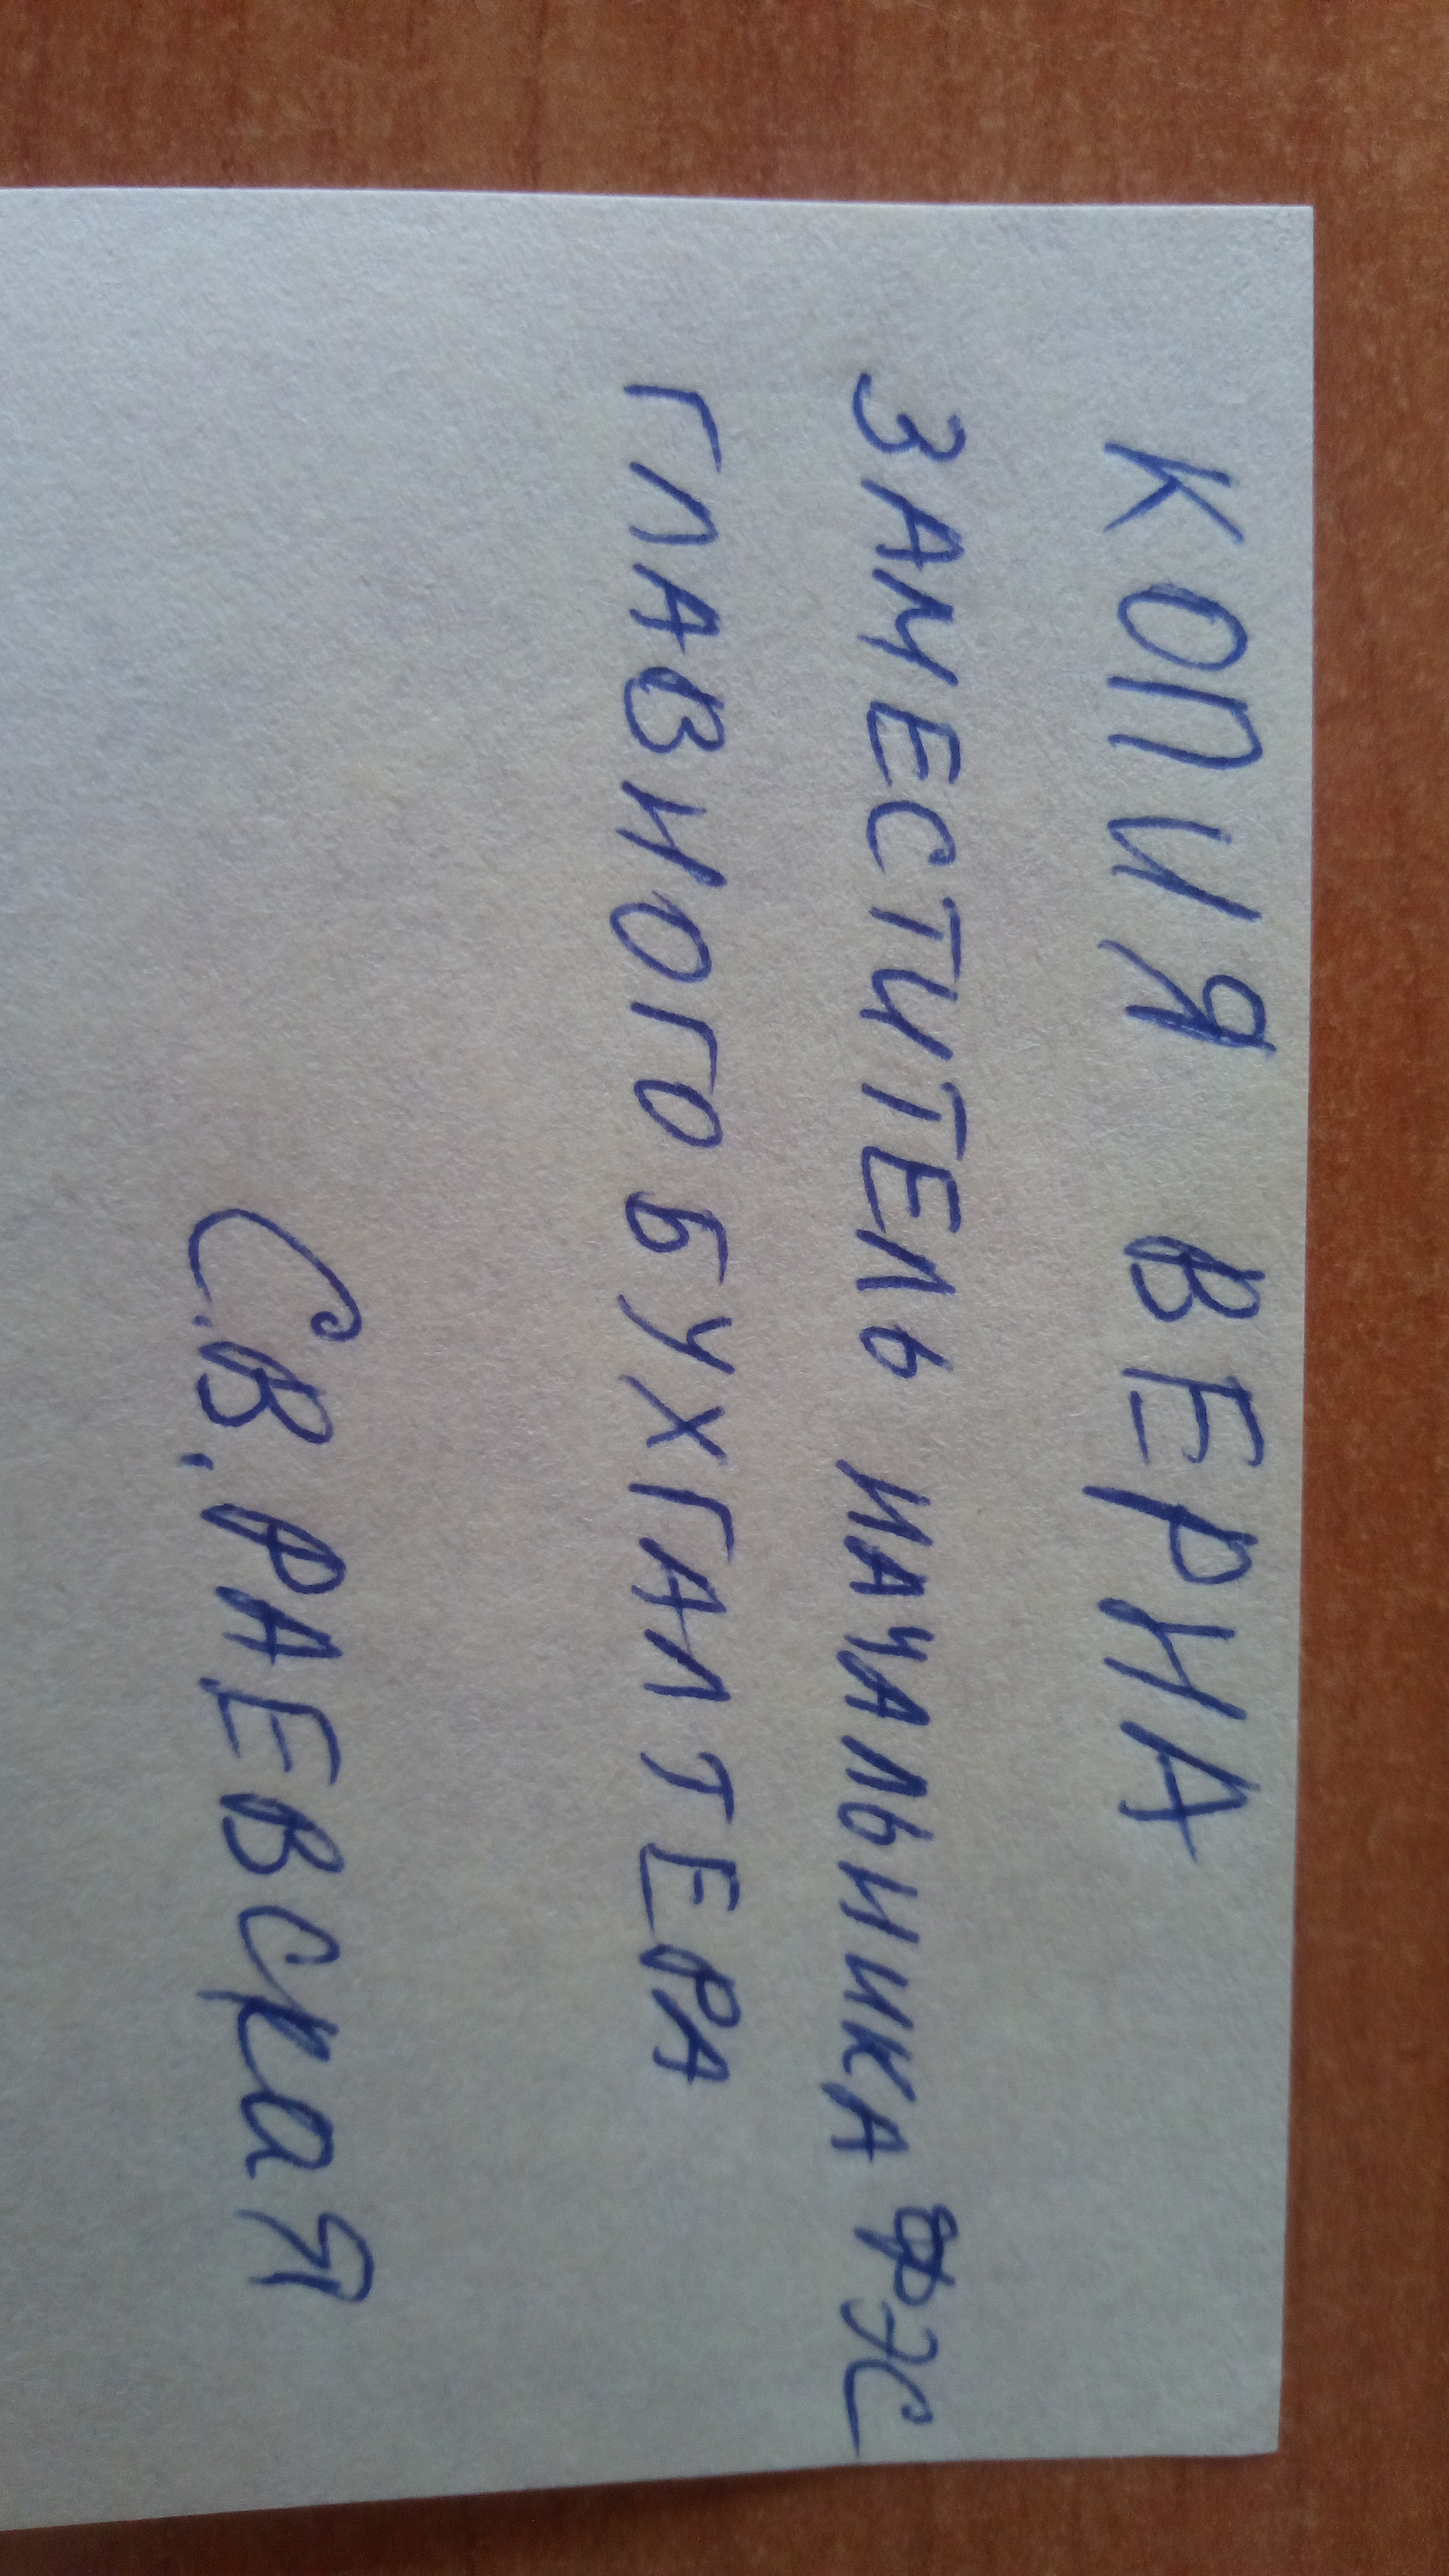 КОПИЯ ВЕРНА
ЗАМЕСТИТЕЛЬ НАЧАЛЬНИКА
ГЛАВНОГО БУХГАЛТЕРА
С.В. РАЕВСКАЯ